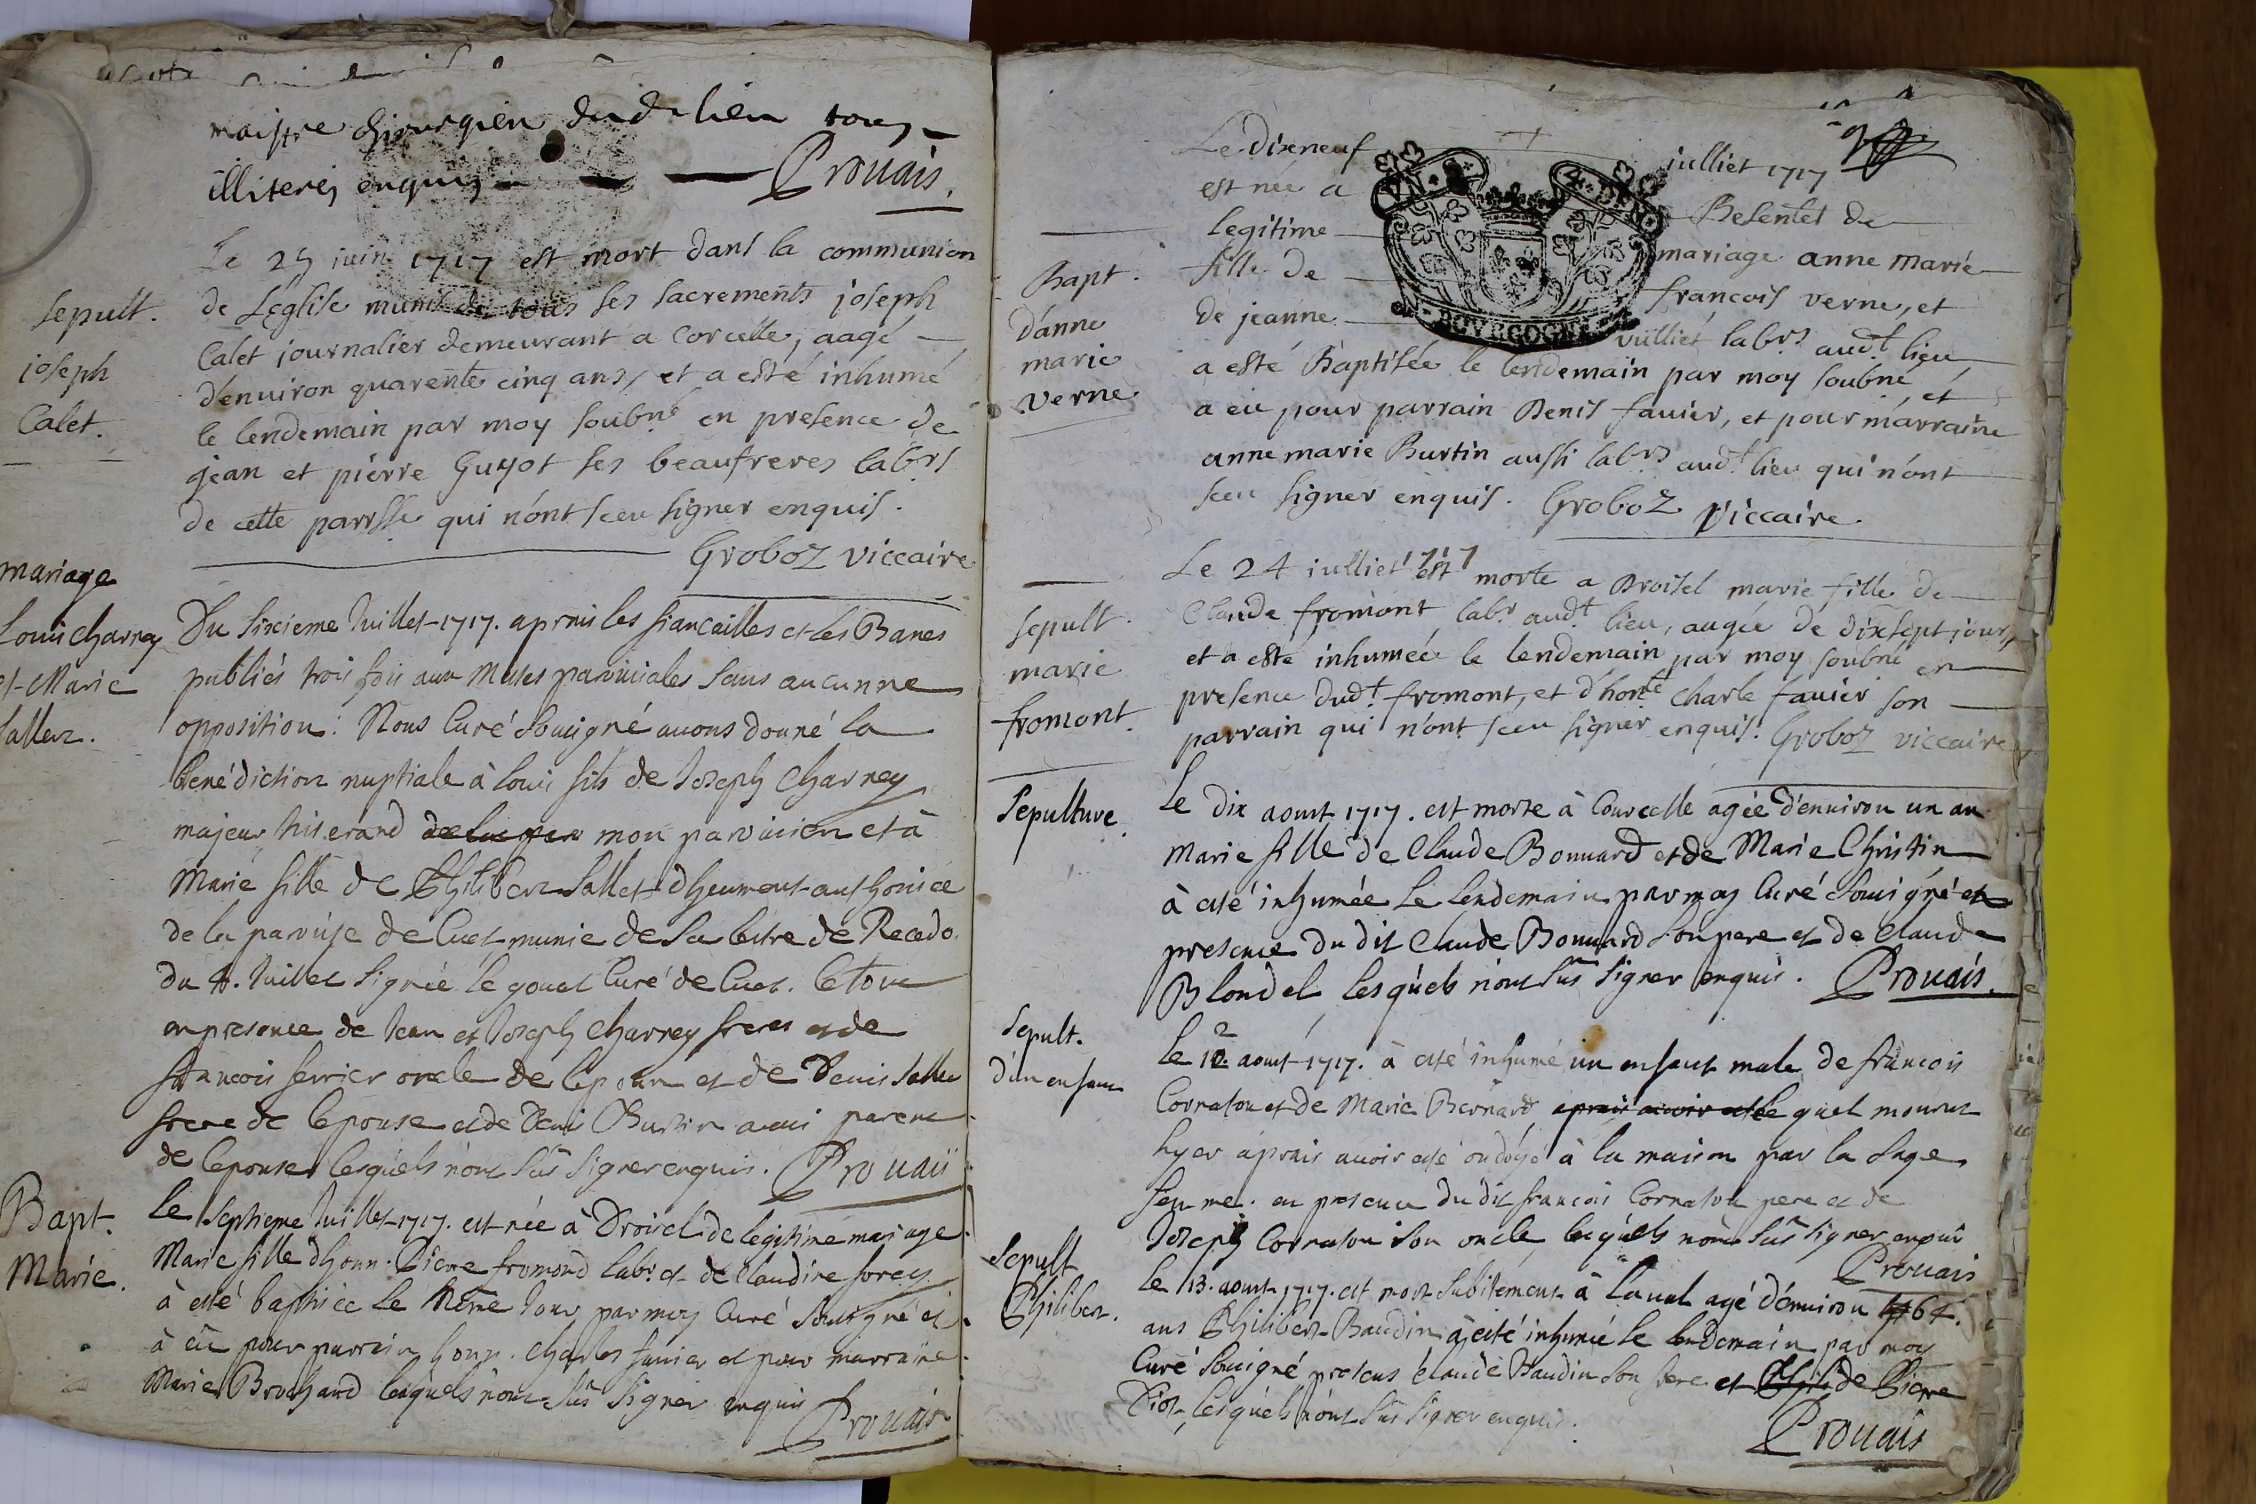 maistre chirurgien dud. lieu tous
illiterés enquis Prouais.
Le 25 juin 1717 est mort dans la communion
de L'eglise munis de tous ses sacrements joseph
Calet journalier demeurant a Corcelle, aagé
d'enuiron quarente cinq ans, et a esté inhumé
le lendemain par moy soubné en presence de
jean et pierre Guyot ses beaufreres labrs
de cette parrsse qui n'ont sceu signer enquis.
Groboz viccaire
Sepult.
joseph
Calet.
mariage
Louis charnay
et Marie
Sallez.
Du Sixieme Juillet 1717. aprais les fiancailles et les Banes
publiés trois fois aux Messes paroissiales Sans aucunne
opposition. Nous Curé Sousigné auons donné la
benédiction nuptiale à Louis fils de Joseph Charney
majeur tisserand mon paroissien et à
Marie fille de Philibert Sallet
de la paroisse de Cuet munie de Sa lettre de Recedo
du 4. Juillet Signée le gouet Curé de Cuet. Le tout
en presence de Jean et Joseph Charney freres et de
francois ferrier oncle de l'epoux et de Denis Sallet
frere de l'epouse et de Denis Burtin aussi parent
de l'epouse lesquels n'ont Sûs Signer enquis. Prouais
Bapt.
Marie.
Le Septieme Juillet 1717. est née à Droisel de legitime mariage
Marie fille d'honn. Pierre fromond labr. et de Claudine forey
à esté baptisée le même Jour par moy Curé Sousigné et
à eû pour parrain honn. Charles fauier et pour marraine
Marie Brochand lesquels n'ont Sûs Signer enquis Prouais
Le dixneuf julliet 1717
est née a Beelentet de
legitime mariage anne marie
fille de francois verne, et
de jeanne vulliet labrs aud.t lieu
a esté Baptisée le lendemain par moy soubné, et
a eu pour parrain Denis fauier, et pour marraine
anne marie Burtin aussi labrs aud.t lieu qui n'ont
sceu signer enquis. Groboz Viccaire.
GEN.
BOVRGOGNE
Bapt.
d'anne
marie
verne
Le 24 julliet 1717 est morte a Droisel marie fille de
Claude fromont labr. aud.t lieu, augée de dixsept jours,
et a esté inhumée le lendemain par moy soubné en
presence dud.t fromont, et d'honte Charle fauier son
parrain qui n'ont sceu signer enquis. Groboz viccaire
Sepult.
marie
fromont.
Sepulture.
Le dix aoust 1717. est morte à Courcelle agée d'enuiron un an
Marie fille de Claude Bonnard et de Marie Christin
à esté inhumée Le Lendemain par moy Curé Sousigné en
presence du dit Claude Bonnard son pere et de Claude
Blondel, Lesquels n'ont Sûs Signer enquis. Prouais.
Sepult.
d'un enfant
Le 12 aoust 1717. à esté inhumé un enfant male de francois
Cornaton et de Marie Bernard, aprais auoir esté lequel mourut
hyer aprais auoir esté ondoyé à la maison par la Sage
femme. en presence du dit francois Cornaton pere et de
Joseph Cornaton Son oncle lesquels n'ont Sûs Signer enquis
Prouais
Sepult
Philibert.
Le 13. aoust 1717. est mort Subitement à Laual agé d'enuiron 64.
ans Philibert Baudin à esté inhumé le lendemain par moy
Curé Sousigné presens Claude Baudin Son frere et de Pierre
Piot, Lesquels n'ont Sûs Signer enquis.
Prouais